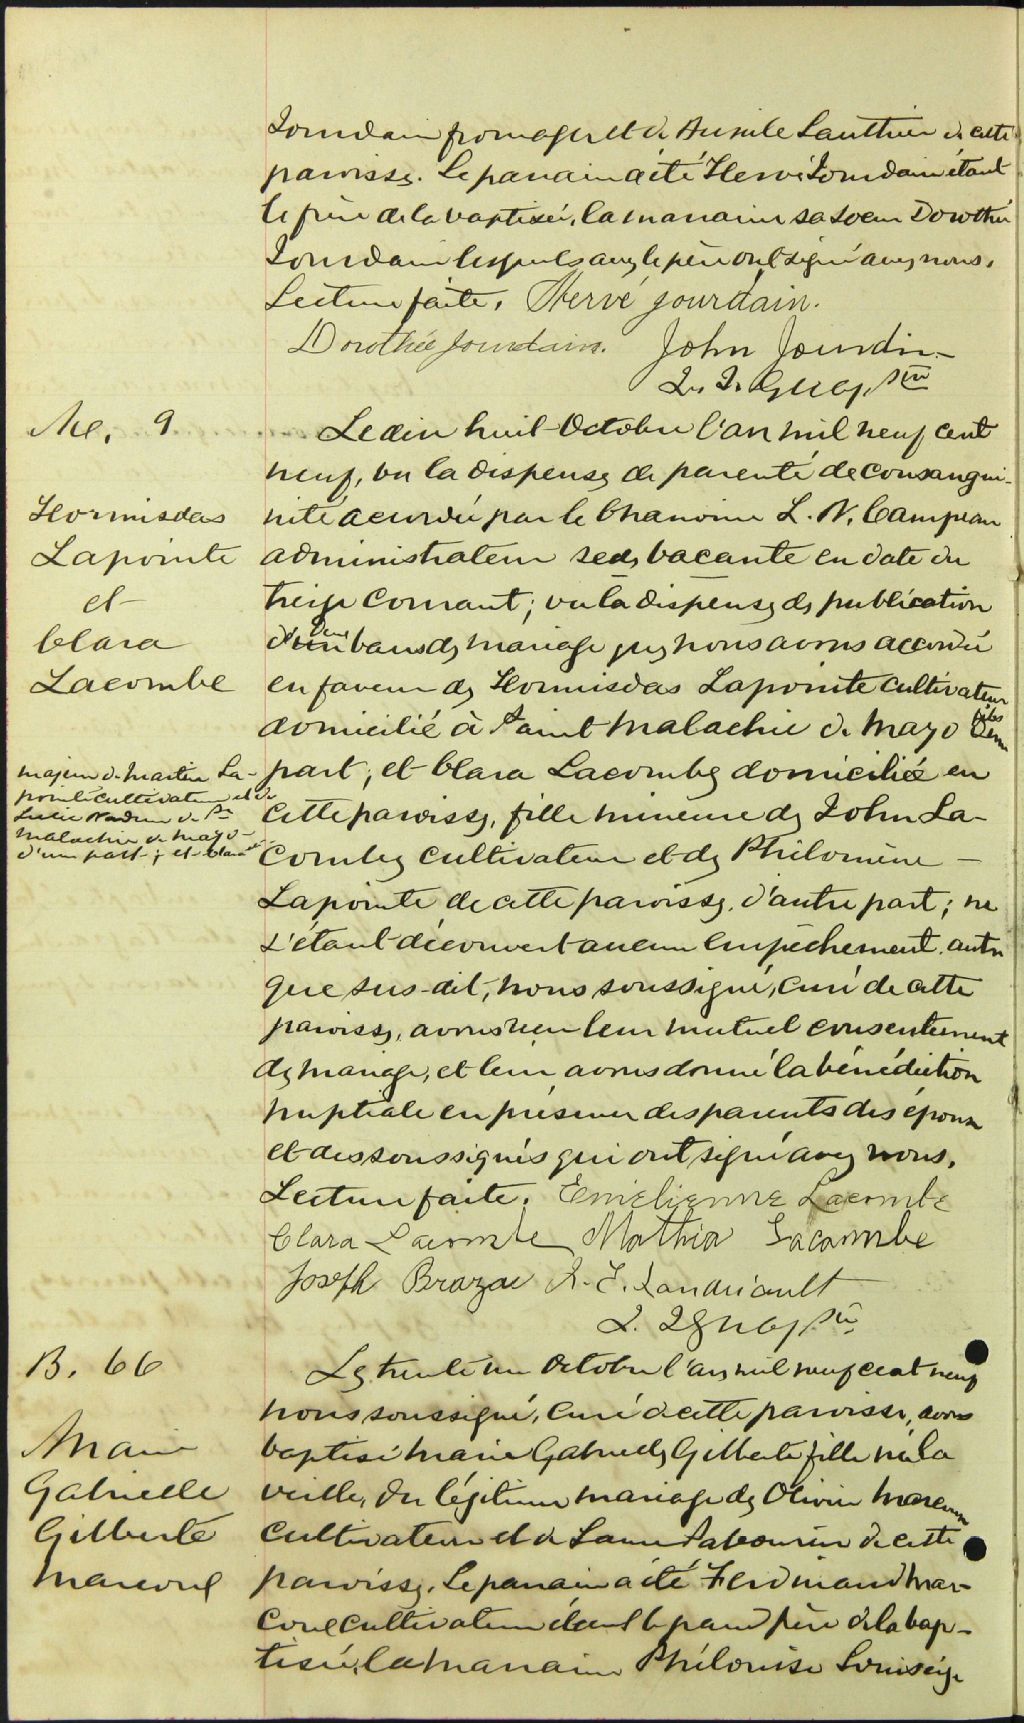 Jourdain fromager et de Aurile Gauthier de cette
paroisse. Le parrain a été Hervé Jourdain étant
le frère de la baptisée, la marraine sa soeur Dorothée
Jourdain lesquels avec le père ont signé avec nous.
Lecture faite. Hervé Jourdain.
Dorothée Jourdain. John Jourdin
Ptre
M. 9
Hormisdas
Lapointe
et
Clara
Lacombe
Le dix huit Octobre l'an mil neuf cent
neuf, vu la dispense de parenté de consangui-
nité accordée par le Chanoine L. N. Campeau
administrateur sede vacante en date du
treize courant; vu la dispense de publication
d'un bans de mariage que nous avons accordée
en faveur de Hormisdas Lapointe cultivateur
domicilié à Saint Malachie de Mayo
majeur de Martin La-
pointe cultivateur et de
Lucie Nadeau de St
Malachie de Mayo
d'une part; et Clara
part, et Clara Lacombe domiciliée en
cette paroisse, fille mineure de John La-
combe cultivateur et de Philomène
Lapointe de cette paroisse, d'autre part; ne
s'étant découvert aucun empêchement autre
que sus-dit, nous soussigné, curé de cette
paroisse, avons reçu leur mutuel consentement
de mariage, et leur avons donné la bénédiction
nuptiale en présence des parents des époux
et des soussignés qui ont signé avec nous.
Lecture faite. Emélienne Lacombe
Clara Lacombe Mathia Lacombe
Joseph Brazeau Landriault
Ptre
B. 66
Marie
Gabrielle
Gilberte
Marcoux
Le trente un Octobre l'an mil neuf cent neuf
nous soussigné, curé de cette paroisse, avons
baptisé Marie Gabrielle Gilberte fille née la
veille, du légitime mariage de Olivier
cultivateur et de Laura Sabourin de cette
paroisse. Le parrain a été Ferdinand Mar-
cultivateur étant le grand père de la bap-
tisée, la marraine Philouise